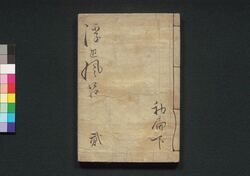 浮世風呂 貳
初編下